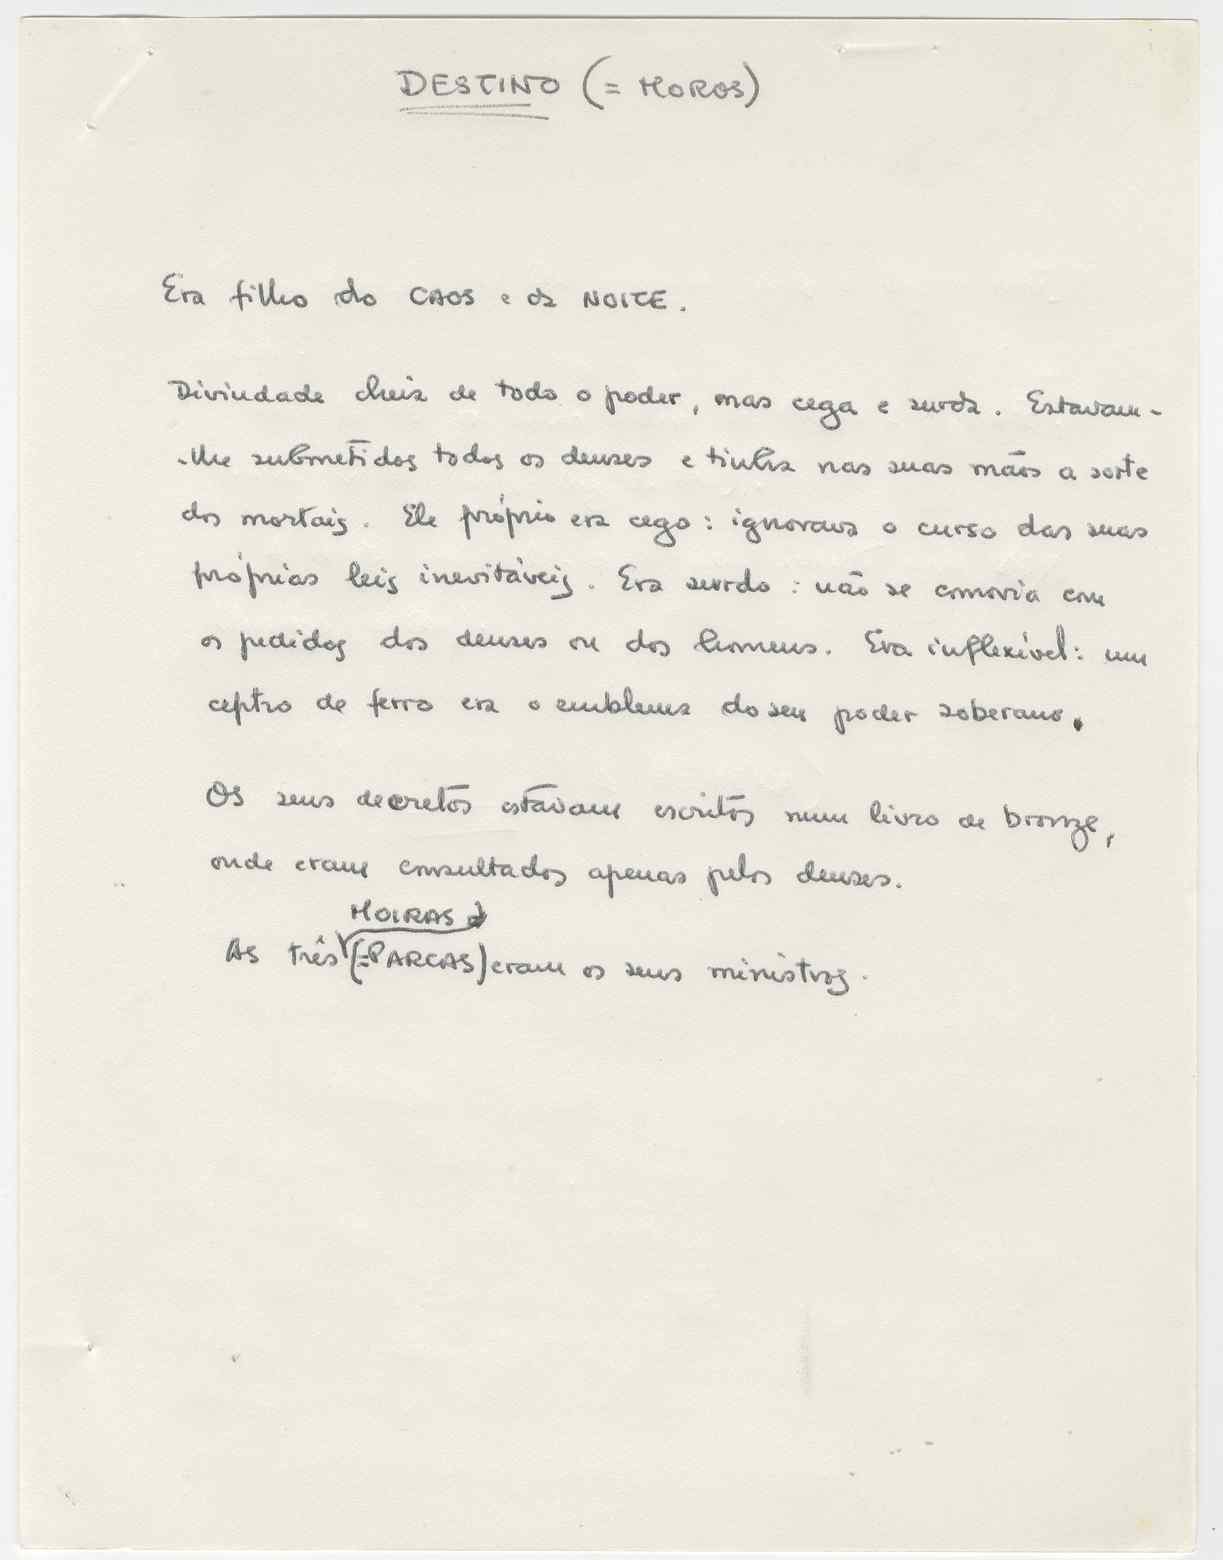 DESTINO (= MOROS)
Era filho do CAOS e da NOITE.
Divindade cheia de todo o poder, mas cega e surda. Estavam-
-lhe submetidos todos os deuses e tinha nas suas mãos a sorte
dos mortais. Ele próprio era cego: ignorava o curso das suas
próprias leis inevitáveis. Era surdo: não se comovia com
os pedidos dos deuses ou dos homens. Era inflexível: um
ceptro de ferro era o emblema do seu poder soberano.
Os seus decretos estavam escritos num livro de bronze,
onde eram consultados apenas pelos deuses.
MOIRAS
As três (=PARCAS) eram os seus ministros.